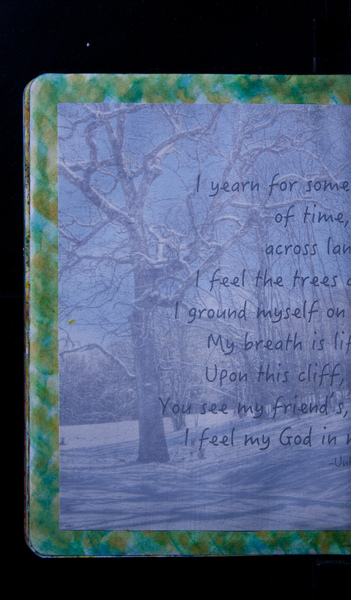 I yearn for some
of time,
across lan
I feel the trees
I ground myself on
My breath is lif
Upon this cliff,
You see my friend's,
I feel my God in